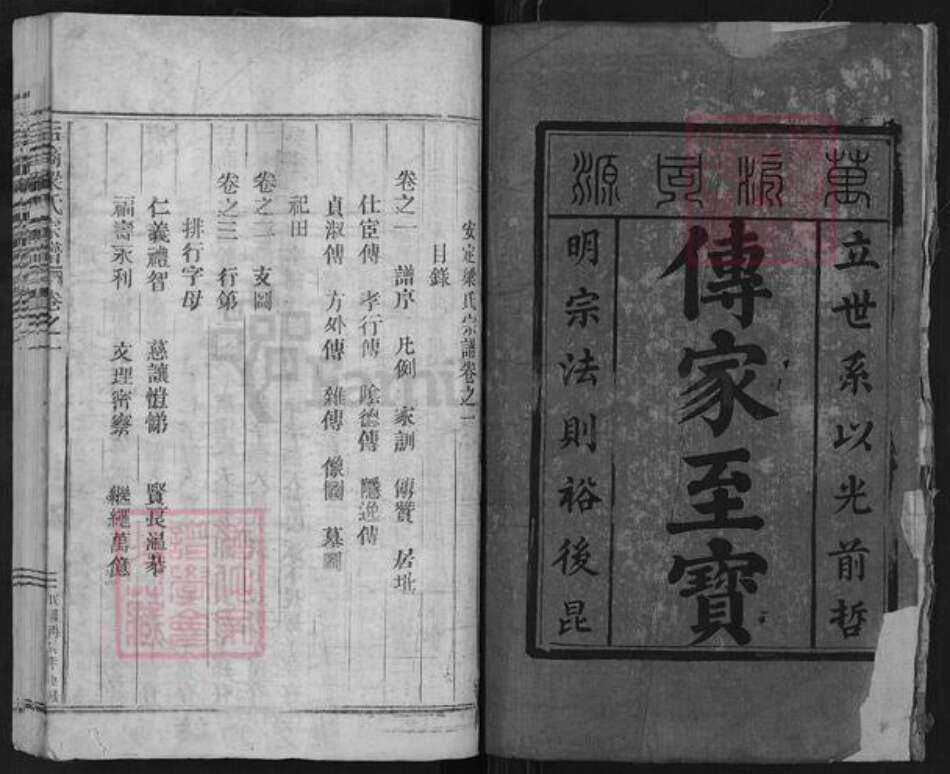 萬派同源
立世系以光前哲
傳家至寶
明宗法則裕後昆
安定梁氏宗譜卷之一
目錄
卷之一 譜序 凡例 家訓 傳贊 居址
仕宦傳 孝行傳 陰德傳 隱逸傳
貞淑傳 方外傳 雜傳 像圖 墓圖
祀田
卷之二 支圖
卷之三 行第
排行字母
仁義禮智 慈讓愷悌 賢良溫恭
福壽永利 文理密察 繼繩萬億
梁氏宗譜 卷之一